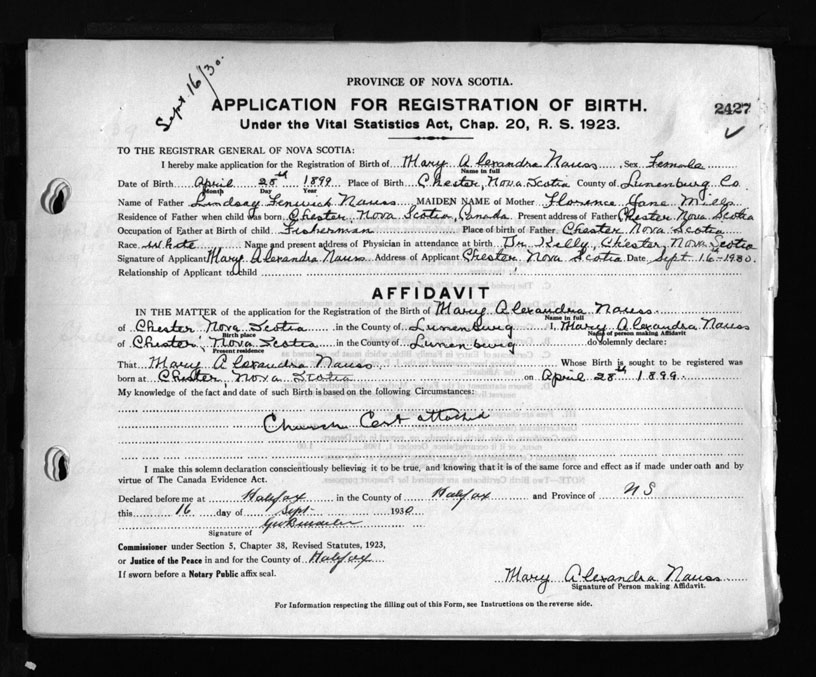 Sept 16/30.
PROVINCE OF NOVA SCOTIA.
APPLICATION FOR REGISTRATION OF BIRTH.
2427
Under the Vital Statistics Act, Chap. 20, R. S. 1923.
TO THE REGISTRAR GENERAL OF NOVA SCOTIA:
I hereby make application for the Registration of Birth of Mary Alexandra Nauss, Sex Female
Name in full
Date of Birth April 28th 1899 Place of Birth Chester, Nova Scotia County of Lunenburg Co
Month Day Year
Name of Father Lindsay Fenwick Nauss MAIDEN NAME of Mother Florence Jane Mills
Residence of Father when child was born Chester, Nova Scotia, Canada. Present address of Father Chester Nova Scotia
Occupation of Father at Birth of child Fisherman Place of birth of Father Chester Nova Scotia
Race White Name and present address of Physician in attendance at birth Dr. Kelly, Chester, Nova Scotia
Signature of Applicant Mary Alexandra Nauss Address of Applicant Chester Nova Scotia Date Sept 16th 1930.
Relationship of Applicant to child
AFFIDAVIT
IN THE MATTER of the application for the Registration of the Birth of Mary Alexandra Nauss
Name in full
of Chester Nova Scotia in the County of Lunenburg I, Mary Alexandra Nauss
Birth place Name of person making Affidavit
of Chester, Nova Scotia in the County of Lunenburg do solemnly declare:
Present residence
That Mary Alexandra Nauss Whose Birth is sought to be registered was
born at Chester, Nova Scotia on April 28th 1899.
My knowledge of the fact and date of such Birth is based on the following Circumstances:
Church Cert attached
I make this solemn declaration conscientiously believing it to be true, and knowing that it is of the same force and effect as if made under oath and by
virtue of The Canada Evidence Act.
Declared before me at Halifax in the County of Halifax and Province of N S
this 16 day of Sept. 1930
Signature of
Commissioner under Section 5, Chapter 38, Revised Statutes, 1923,
or Justice of the Peace in and for the County of Halifax
If sworn before a Notary Public affix seal.
Mary Alexandra Nauss
Signature of Person making Affidavit.
For Information respecting the filling out of this Form, see Instructions on the reverse side.